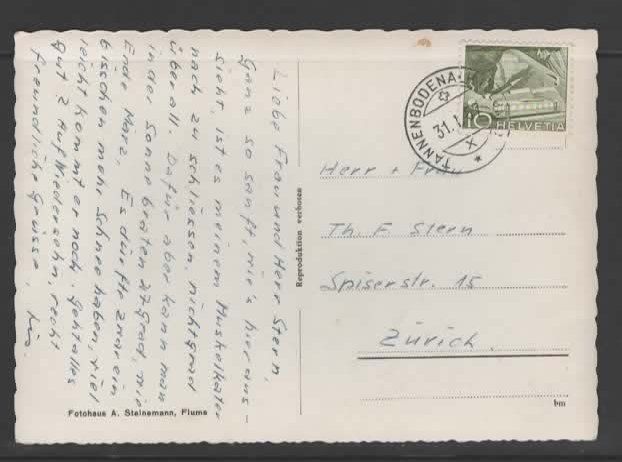 Liebe Frau und Herr Stern,
Ganz so sanft, wie's hier aus-
sieht, ist es meinem Muskelkater
nach zu schliessen, nicht grad
überall. Dafür aber kann man
in der Sonne braten 27 grad, wie
Ende März. Es dürfte zwar ein
bisschen mehr Schnee haben, viel
leicht kommt er noch. Geht alles
gut? Auf Wiedersehn, recht
freundliche Grüsse,
Fotohaus A. Steinemann, Flums
Reproduktion verboten
TANNENBODENA
31.1
10 HELVETIA
Herr + Frau
Th. F. Stern
Spiserstr. 15
Zürich
bm